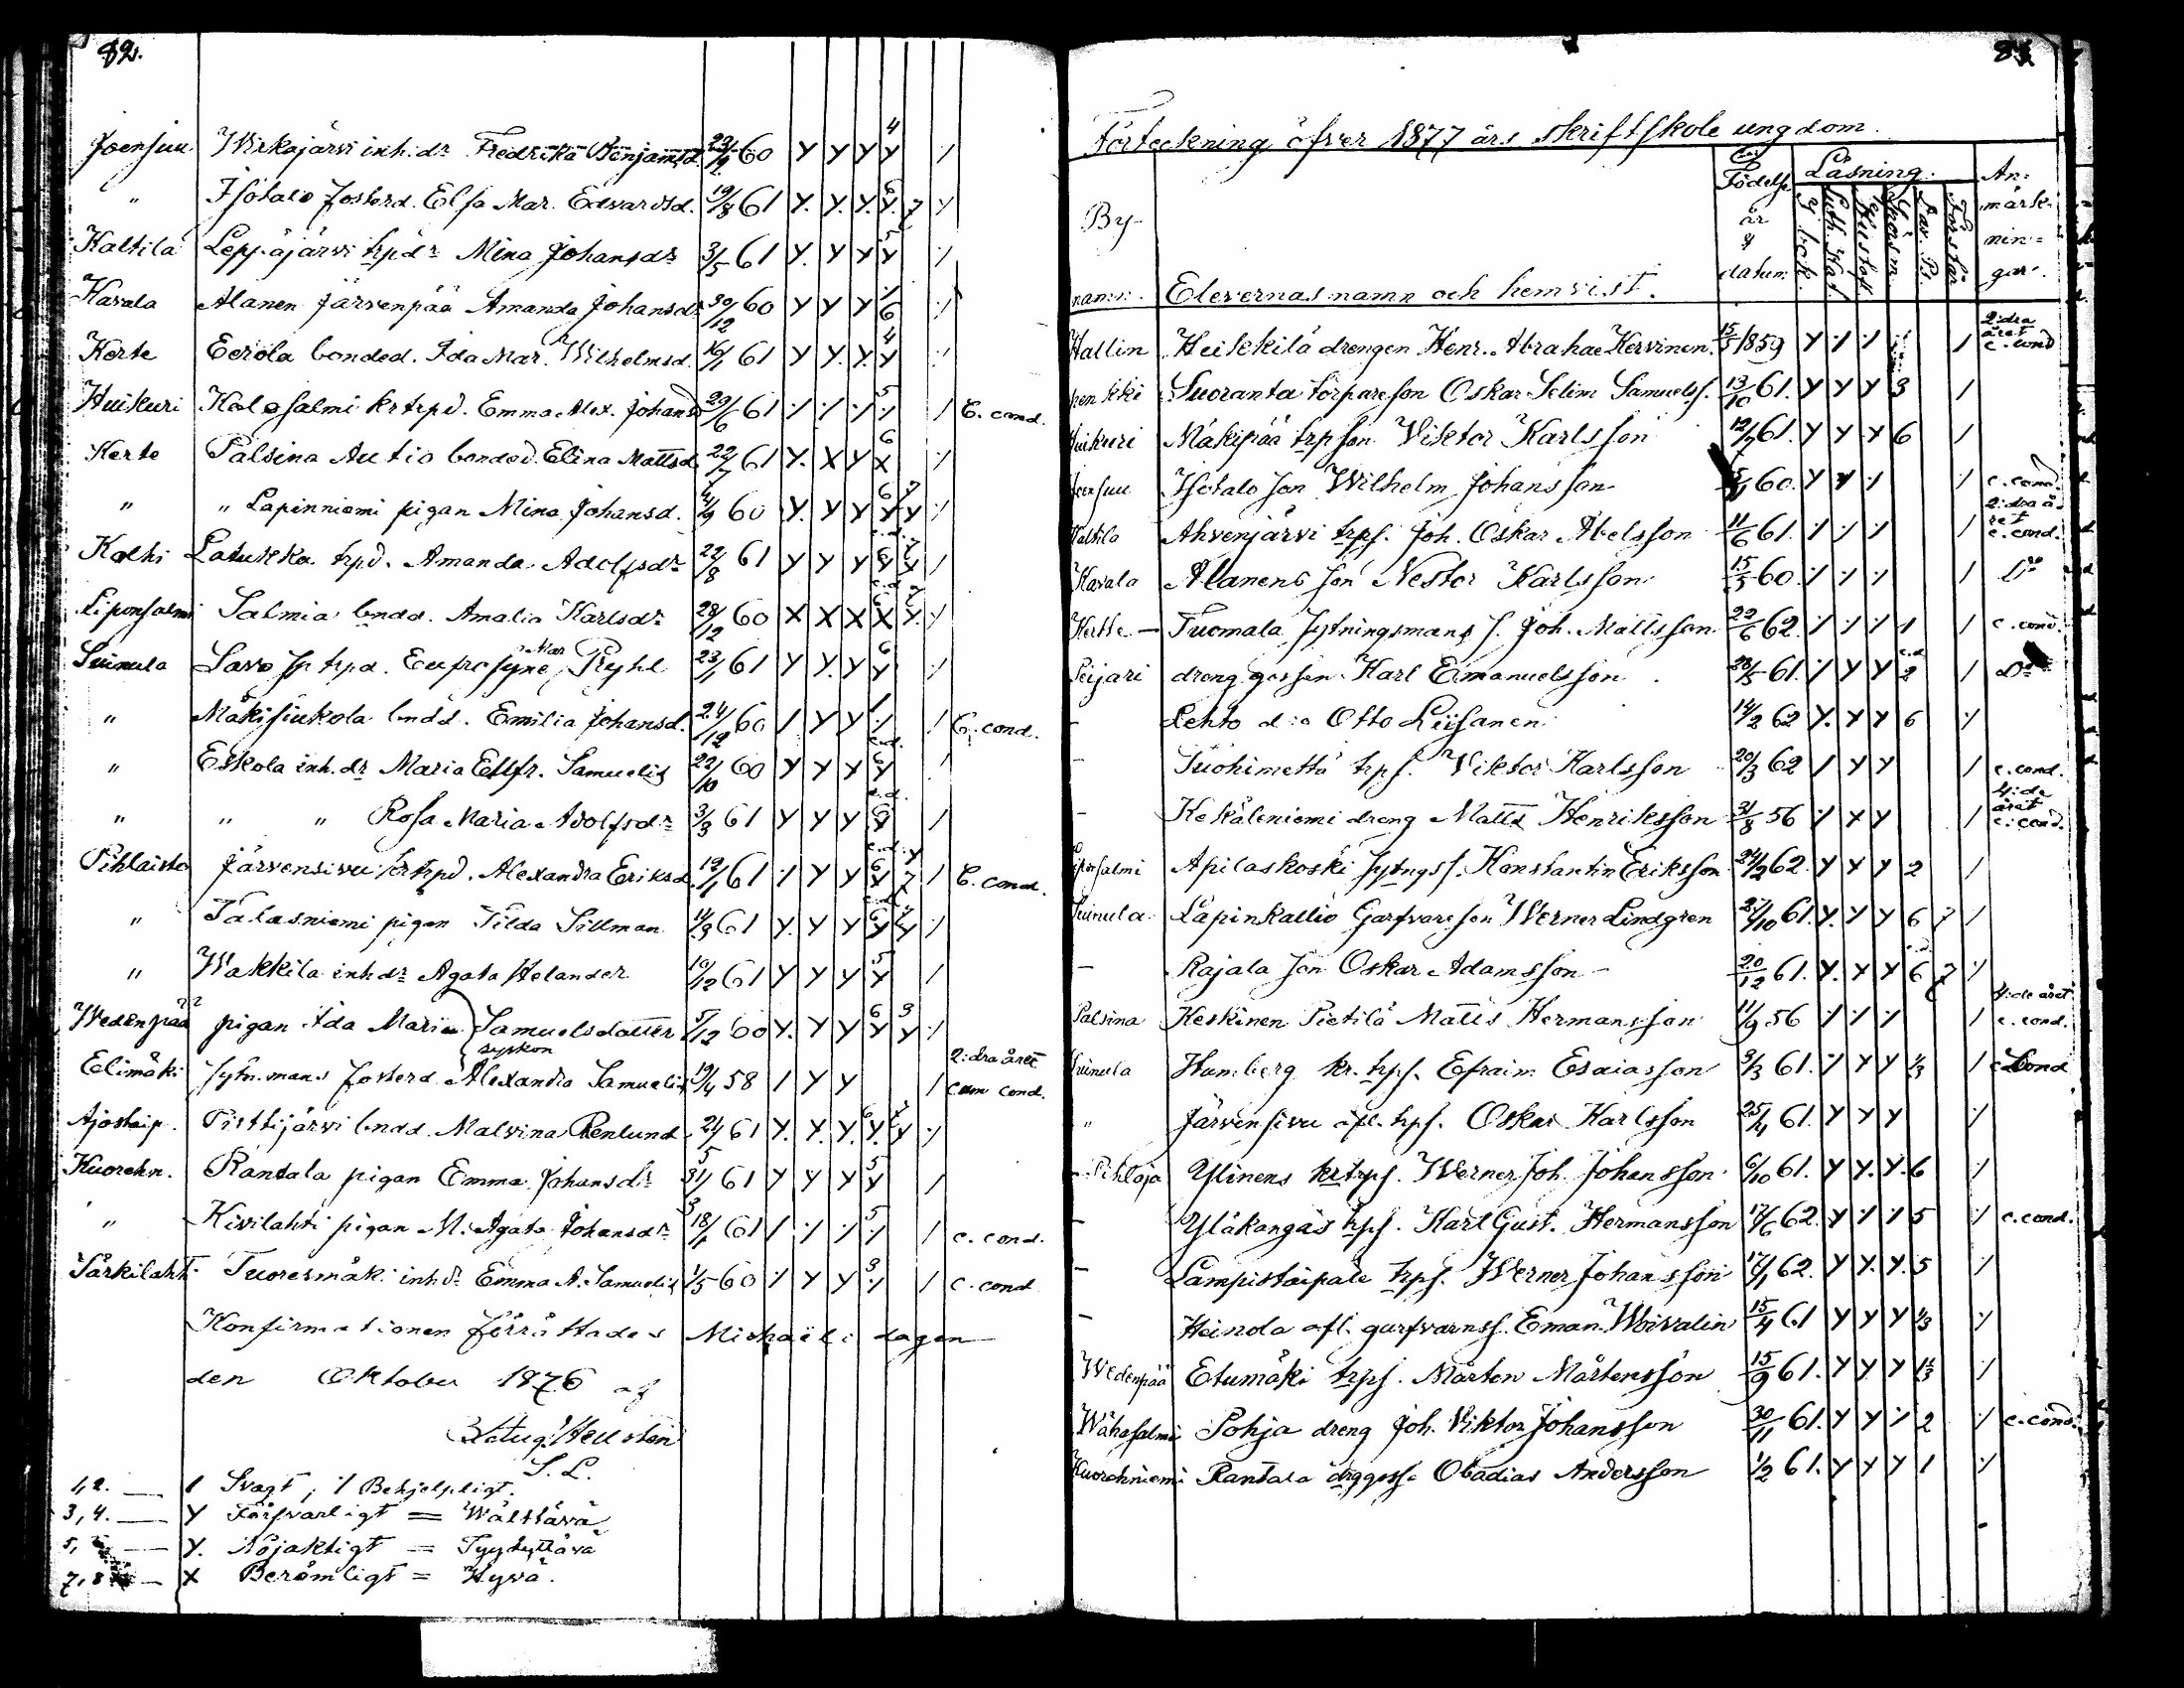 82.
Joensuu Wirkajärvi inh. dr Fredrika Benjamsd. 60 y y y 4 y ·/
" Isotalo fosterd. Elsa Mar. Edvardsd. 19/8 61 y. y. y. 6 y. 7 ·/
Kaltila Leppäjärvi trpdr Mina Johansdr 3/5 61 y. y y 5 y ·/
Kavala Alanen Järvenpää Amanda Johansdr 30/12 60 y y y ·/ 6 ·/
Kerte Eerola bonded. Ida Mar. Wilhelmsd. 16/1 61 y y. y. 4 y ·/
Huikuri Kalasalmi krtrpd. Emma Alex. Johansd 29/6 61 ·/ ·/ ·/ 5 ·/ / C. cond.
Kerte Palsina Autio bonded. Elina Mattsd 22/7 61 y. x y 6 x ·/
" " Lapinniemi pigan Mina Johansd. 4/9 60 y. y y 6 y 7 y ·/
Kalhi Latukka trpd. Amanda Adolfsdr 22/8 61 y y y y 7 y /
Liponsalmi Salmia bndd. Amalia Karlsdr 28/12 60 x x x 6 x y. ·/
Suinula Savo sp trpd. Eufrosyne Mar Pryhl 23/1 61 y y. y 6 y ·/
" Mäkisiukola bndd. Emilia Johansd. 24/12 60 / y y ·/ / C. cond.
" Eskola inh. dr Maria Eufr. Samuelid 22/10 60 y y y y /
" " " Rosa Maria Adolfsdr 3/3 61 y y y y /
Pihlaisto Järvensivu krtrpd. Alexandra Eriksd. 19/1 61 ·/ y y 6 y y / C. cond.
" Talasniemi pigan Tilda Sillman 14/3 61 y. y y 6 y y ·/
" Wakkila inhdr Agata Helander 19/12 61 y y y 5 y /
Wedenpää pigan Ida Maria Samuelsdotter 5/12 60 y. y y 6 y 3 y ·/
syskon
Elimäki sytn.mans fosterd. Alexandra Samuelid 19/4 58 / y y / 2:dra året cum cond.
Ajostaip. Pittijärvi bndd. Malvina Renlund 24/5 61 y. y. y. 6 y. 7 y ·/
Kuorehn. Rantala pigan Emma Johansdr 31/3 61 y y y 5 y /
" Kivilahti pigan M. Agata Johansdr 18/1 61 / ·/ ·/ 5 ·/ / c. cond.
Särkilahti Tuoresmäki inhdr Emma A. Samuelid 1/5 60 ·/ y y 3 ·/ / c. cond
Konfirmationen förrättades Michaëli dagen
den Oktober 1876 af
Aug. Heusten
S. L.
1, 2. — / Svagt; ·/ Behjelpligt.
3, 4. — y Försvarligt = Wälttävä
5, — y. Nöjaktigt = Tyydyttävä
7, 8 — x Berömligt = Hyvä.
Förteckning öfver 1877 års skriftskole ungdom.
By-namn. Elevernas namn och hemvist. Födelse år & datum Läsning. Anmärkningar.
y bok. Luth. Kat. Hustafl Spörsm. Dav. Ps. Förstår
Hallin Heikkilä drengen Henr. Abrahae Kervinen. 15/5 1859 y ·/ ·/ / 2:dra året c. cond
Suoranta torpareson Oskar Selim Samuelss. 13/10 61. y y y 3 /
Huikuri Mäkipää trpson Viktor Karlsson 12/7 61. y y y 6 /
Joensuu Isotalo son Wilhelm Johansson 60. y y ·/ ·/ c. cond.
Kaltila Ahvenjärvi trps. Joh. Oskar Abelsson 11/6 61. ·/ ·/ ·/ / 2:dra året c. cond.
Kavala Alanens son Nestor Karlsson 15/5 60. ·/ ·/ ·/ / Do
Kertte — Tuomala sytningsmans s. Joh. Mattsson 22/6 62. ·/ ·/ ·/ 1 / c. cond.
Seijari dreng gossen Karl Emanuelsson 28/5 61. ·/ y y 2 / Do
— Lehto d:o Otto Liisanen 14/2 62 y. y y 6 ·/
— Suohimettä trps. Viktor Karlsson 20/3 62 / y y / c. cond.
— Kekäleniemi dreng Matts Henriksson 31/8 56 ·/ x y / 4:de året c. cond.
Liponsalmi Apilaskoski sytngss. Konstantin Eriksson 24/2 62. y y y 2 /
Suinula Lapinkallio Garfvareson Werner Lindgren 27/10 61. y. y y 6 7 /
— Rajala son Oskar Adamsson — 20/12 61. y. y y 6 7 ·/
Palsina Keskinen Pietilä Matts Hermansson 11/9 56 ·/ ·/ ·/ / 4:de året c. cond.
Suinula Humberg kr. trps. Efraim Esaiasson 3/3 61. ·/ y y 1/3 / c. cond
" Järvensivu afl. trps. Oskar Karlsson 25/4 61. y y y ·/
Pihlaja Ylinens krtrps. Werner Joh. Johansson 6/10 61. y y. y. 6 ·/
— Yläkangas trps. Karl Gust. Hermansson 17/6 62. y ·/ ·/ 5 ·/ c. cond.
— Lampistaipale trps. Werner Johansson 17/1 62. y y. y. 5 ·/
— Heinola afl. garfvarnss. Eman. Woivalin 15/4 61 y y y 1/3 ·/
Wedenpää Etumäki trps. Mårten Mårtensson 15/9 61. y y y ·/
Wähäsalmi Pohja dreng Joh. Viktor Johansson 30/11 61. y y ·/ 2 ·/ c. cond.
Kuorehniemi Rantala drggoss. Obadias Andersson 1/2 61. y y y 1 ·/